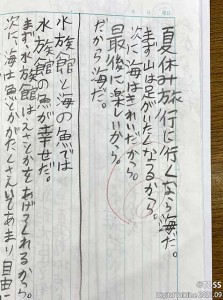 夏休み旅行に行くなら海だ。
まず山は足がいたくなるから。
次に海はきれいだから。
最後に楽しいから。
だから海だ。
水族館と海の魚では
水族館の魚が幸せだ。
まず、水族館はえさをあげてくれるから。
次に、海は魚がたくさんいてあまり自由に